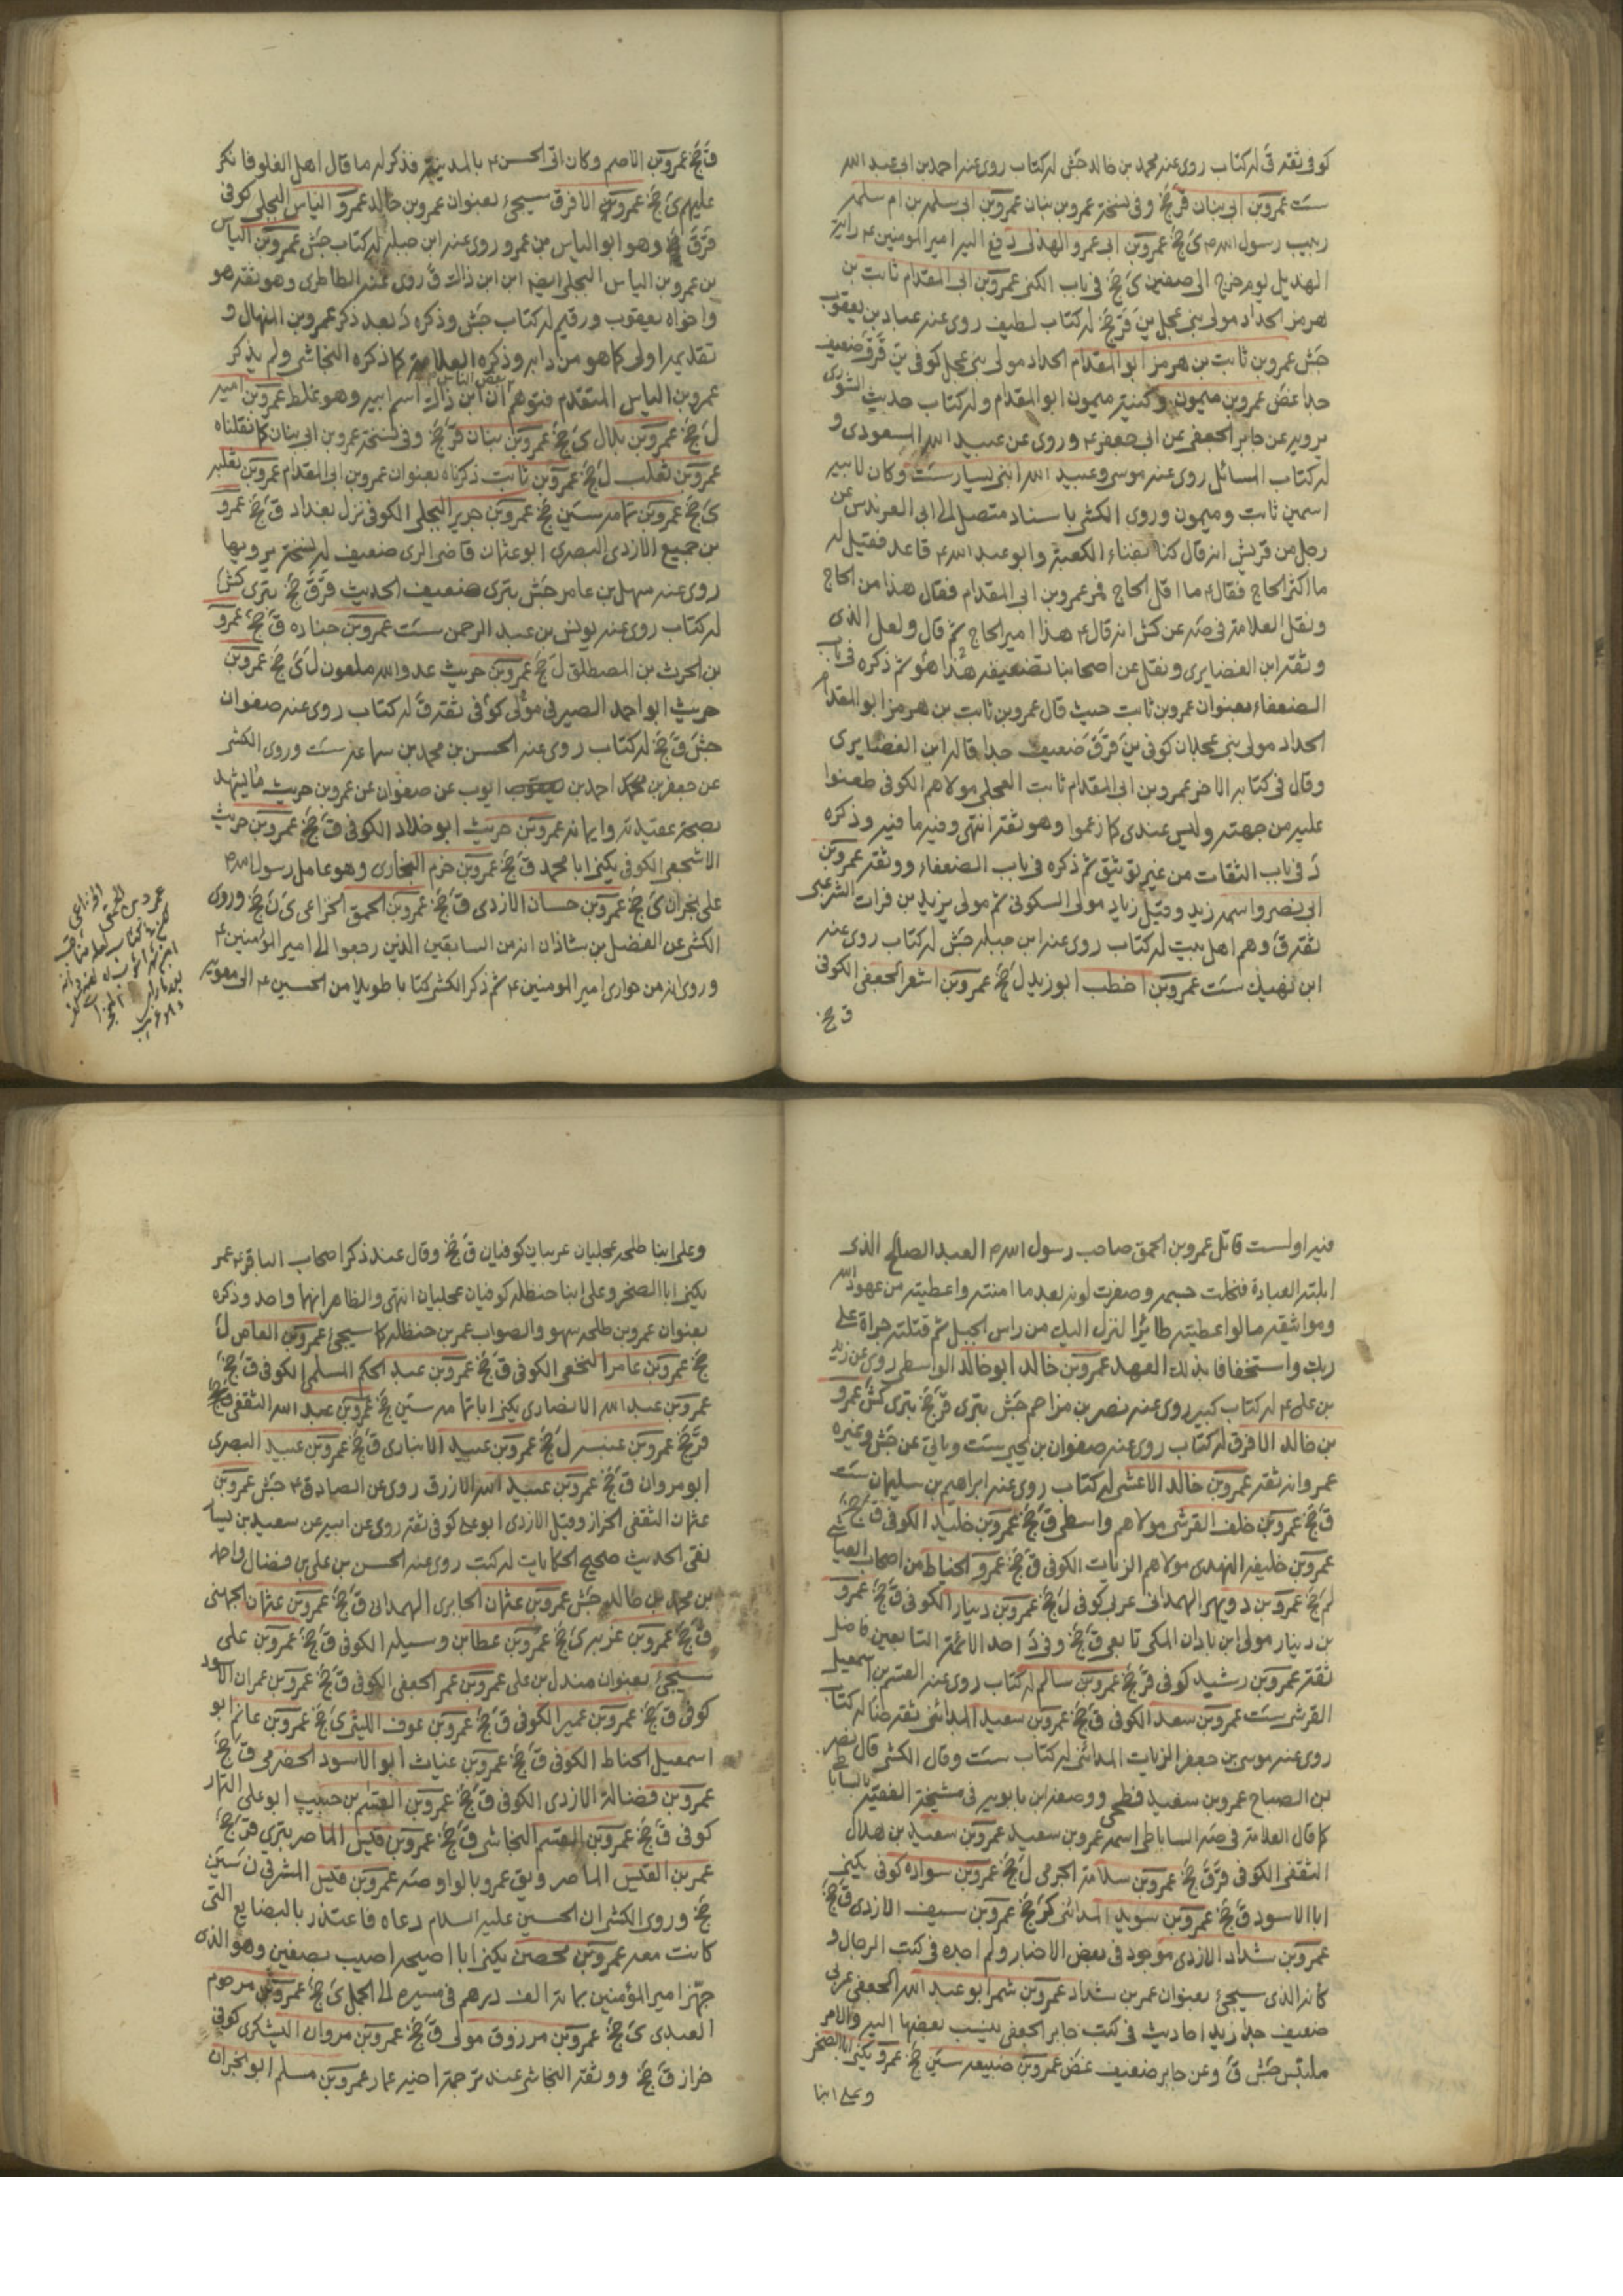 كوفى ثقة قَ له كتاب روى عنه محمد بن خالد جَش له كتاب روى عنه احمد بن ابى عبد الله
سَت عمرو بن ابى بنان قَرجَخ وفى نسخة عمرو بن بنان عمرو بن ابى سلمة بن ام سلمة
ربيب رسول الله ص ىَ جَخ عمرو بن ابى عمرو الهذلى دفع اليه امير المومنين ع راية
الهذيل يوم خرج الى صفين ىَ جَخ فى باب الكنى عمرو بن ابى المقدام ثابت بن
هرمز الحداد مولى بنى عجل ينَ قَرجَخ له كتاب لطيف روى عنه عباد بن يعقوب
جَش عمرو بن ثابت بن هرمز ابو المقدام الحداد مولى بنى عجل كوفى ينَ قَرقَ ضعيف
جدا غَض عمرو بن ميمون وكنية ميمون ابو المقدام وله كتاب حديث الشورى
يرويه عن جابر الجعفى عن ابى جعفر ع وروى عن عبيد الله المسعودى و
له كتاب المسائل روى عنه موسى وعبيد الله ابنى يسار سَت وكان لابيه
اسمين ثابت وميمون وروى الكشى باسناد متصل الى ابى العرندس عن
رجل من قريش انه قال كنا بفناء الكعبة وابو عبد الله ع قاعد فقيل له
ما اكثر الحاج فقال ع ما اقل الحاج فمر عمرو بن ابى المقدام فقال هذا من الحاج
ونقل العلامة فى صَه عن كش انه قال ع هذا امير الحاج ثم قال ولعل الذى
وثقه ابن الغضايرى ونقل عن اصحابنا تضعيفه هذا هو ثم ذكره فى باب
الضعفاء بعنوان عمرو بن ثابت حيث قال عمرو بن ثابت بن هرمز ابو المقدام
الحداد مولى بنى عجلان كوفى ينَ قَرقَ ضعيف جدا قاله ابن الغضايرى
وقال فى كتابه الاخر عمرو بن ابى المقدام ثابت العجلى مولاهم الكوفى طعنوا
عليه من جهة وليس عندى كما زعموا وهو ثقة انتهى وفيه ما فيه وذكره
دَ فى باب الثقات من غير توثيق ثم ذكره فى باب الضعفاء ووثقه عمرو بن
ابى نصر واسمه زيد وقيل زياد مولى السكونى ثم مولى يزيد بن فرات الشرعبى
ثقة قَ وهم اهل بيت له كتاب روى عنه ابن جبله جَش له كتاب روى عنه
ابن نهيك سَت عمرو بن اخطب ابو زيد لَ جَخ عمرو بن اشعر الجعفى الكوفى
ق جخ
قَ جَخ عمرو بن الاصم وكان اتى الحسن ع بالمدينة فذكر له ما قال اهل الغلو فانكر
عليهم ىَ جَخ عمرو بن الافرق سيجئ بعنوان عمرو بن خالد عمرو الياس البجلى كوفى
قَرقَ جَخ وهو ابو الياس بن عمرو روى عنه ابن جبله له كتاب جَش عمرو بن الياس
بن عمرو بن الياس البجلى ايضه ابن ابن ذاك قَ روى عنه الطاطرى وهو ثقة هو
واخواه يعقوب ورقيم له كتاب جَش وذكره دَ بعد ذكر عمرو بن المنهال و
تقديمه اولى كما هو من دابه وذكره العلامة كما ذكره النجاشى ولم يذكر
عمرو بن الياس المتقدم فتوهم بعض الناس ان ابن ذاك اسم ابيه وهو غلط عمرو بن امية
لَ جَخ عمرو بن بلال ىَ جَخ عمرو بن بنان قَرجَخ وفى نسخة عمرو بن ابى بنان كما نقلناه
عمرو بن تغلب لَ جَخ عمرو بن ثابت ذكرناه بعنوان عمرو بن ابى المقدام عمرو بن ثعلبه
ىَ جَخ عمرو بن ثمامه سينَ جَخ عمرو بن جرير البجلى الكوفى نزل بغداد قَ جَخ عمرو
بن جميع الازدى البصرى ابو عثمان قاضى الرى ضعيف له نسخة يرويها
روى عنه سهل بن عامر جَش بترى ضعيف الحديث قَرقَ جَخ بترى كش
له كتاب روى عنه يونس بن عبد الرحمن سَت عمرو بن جناده قَ جَخ عمرو
بن الحرث بن المصطلق لَ جَخ عمرو بن حريث عدو الله ملعون لَ ىَ جَخ عمرو بن
حريث ابو احمد الصيرفى مولى كوفى ثقة قَ له كتاب روى عنه صفوان
جَش قَ جَخ له كتاب روى عنه الحسن بن محمد بن سماعة سَت وروى الكشى
عن جعفر بن احمد بن ايوب عن صفوان عن عمرو بن حريث ما يشهد
بصحة عقيدته وايمانه عمرو بن حريث ابو خلاد الكوفى قَ جَخ عمرو بن حريث
الاشجعى الكوفى يكنى ابا محمد قَ جَخ عمرو بن حزم النجارى وهو عامل رسول الله ص
على نجران ىَ جَخ عمرو بن حسان الازدى قَ جَخ عمرو بن الحمق الخزاعى ىَ نَ جَخ وروى
الكشى عن الفضل بن شاذان انه من السابقين الذين رجعوا الى امير المؤمنين ع
وروى انه من حوارى امير المومنين ع ثم ذكر الكشى كتابا طويلا من الحسين ع الى معويه
عمرو بن الحمق الخزاعى
فيه اولست قاتل عمرو بن الحمق صاحب رسول الله ص العبد الصالح الذى
ابلته العبادة فنحلت جسمه وصفرت لونه بعد ما امنته واعطيته من عهود الله
ومواثيقه ما لو اعطيته طائرا لنزل اليك من راس الجبل ثم قتلته جراة على
ربك واستخفافا بذلك العهد عمرو بن خالد ابو خالد الواسطى روى عن زيد
بن على ع له كتاب كبير روى عنه نصر بن مزاحم جَش بترى قَرجَخ بترى كش عمرو
بن خالد الافرق له كتاب روى عنه صفوان بن يحيى سَت وياتى عن جَش وغيره
عمر وانه ثقة عمرو بن خالد الاعشى له كتاب روى عنه ابراهيم بن سليمان سَت
قَ جَخ عمرو بن خلف القرشى مولاهم واسطى قَ جَخ عمرو بن خليد الكوفى قَ جَخ
عمرو بن خليفه النهدى مولاهم الزيات الكوفى قَ جَخ عمرو الخياط من اصحاب العياشى
لم جَخ عمرو بن دويهر الهمدانى عربى كوفى لَ جَخ عمرو بن دينار الكوفى قَ جَخ عمرو
بن دينار مولى ابن باذان المكى تابعى قَ جَخ وفى دَ احد الائمة التابعين فاضل
ثقة عمرو بن رشيد كوفى قَرجَخ عمرو بن سالم له كتاب روى عنه القسم بن اسمعيل
القرشى سَت عمرو بن سعد الكوفى قَ جَخ عمرو بن سعيد المدائنى ثقة ضا له كتاب
روى عنه موسى بن جعفر الزيات المدائنى له كتاب سَت وقال الكشى قال نصر
بن الصباح عمرو بن سعيد فطحى ووصفه ابن بابويه فى مشيخة الفقيه بالساباطى
كما قال العلامة فى صَه الساباطى اسمه عمرو بن سعيد عمرو بن سعيد بن هلال
الثقفى الكوفى قَرقَ جَخ عمرو بن سلامة الجرمى لَ جَخ عمرو بن سواده كوفى يكنى
ابا الاسود قَ جَخ عمرو بن سويد المدائنى كر جَخ عمرو بن سيف الازدى قَ جَخ
عمرو بن شداد الازدى موجود فى بعض الاخبار ولم اجده فى كتب الرجال و
كانه الذى سيجئ بعنوان عمر بن شداد عمرو بن شمر ابو عبد الله الجعفى عربى
ضعيف جدا زيد احاديث فى كتب جابر الجعفى ينسب بعضها اليه والامر
ملتبس جَش قَ وعن جابر ضعيف غض عمرو بن ضبيعه سينَ جَخ عمرو يكنى ابا الصخر
وعلى ابنا
وعلى ابنا طلحه عجليان عربيان كوفيان قَ جَخ وقال عند ذكر اصحاب الباقر ع عمر
يكنى ابا الصخر وعلى ابنا حنظله كوفيان عجليان انتهى والظاهر انهما واحد وذكره
بعنوان عمرو بن طلحه سهو والصواب عمر بن حنظله كما سيجئ عمرو بن العاص لَ
جَخ عمرو بن عامر النخعى الكوفى قَ جَخ عمرو بن عبد الحكم المسلمى الكوفى قَ جَخ
عمرو بن عبد الله الانصارى يكنى ابا ثمامه سينَ جَخ عمرو بن عبد الله الثقفى قَ جَخ
قَرجَخ عمرو بن عبسه لَ جَخ عمرو بن عبيد الانبارى قَ جَخ عمرو بن عبيد البصرى
ابو مروان قَ جَخ عمرو بن عبيد الله الازرق روى عن الصادق ع جَش عمرو بن
عثمان الثقفى الخزاز وقيل الازدى ابو على كوفى ثقة روى عن ابيه عن سعيد بن يسار
نقى الحديث صحيح الحكايات له كتب روى عنه الحسن بن على بن فضال واحمد
بن محمد بن خالد جَش عمرو بن عثمان الجابرى الهمدانى قَ جَخ عمرو بن عثمان الجهنى
قَ جَخ عمرو بن عزيه ىَ جَخ عمرو بن عطا بن وسيله الكوفى قَ جَخ عمرو بن على
سيجئ بعنوان مندل بن على عمرو بن عمر الجعفى الكوفى قَ جَخ عمرو بن عمران الاسود
كوفى قَ جَخ عمرو بن عمير الكوفى قَ جَخ عمرو بن عوف الليثى ىَ جَخ عمرو بن غانم ابو
اسمعيل الحناط الكوفى قَ جَخ عمرو بن غياث ابو الاسود الحضرمى قَ جَخ
عمرو بن فضالة الازدى الكوفى قَ جَخ عمرو بن القسم بن حبيب ابو على التمار
كوفى قَ جَخ عمرو بن القسم النجاشى قَ جَخ عمرو بن قيس الماصر بترى قَرجَخ
عمر بن القيس الماصر ويق عمرو بالواو صَه عمرو بن قيس المشرقى نَ سينَ
جَخ وروى الكشى ان الحسين عليه السلام دعاه فاعتذر بالبضايع التى
كانت معه عمرو بن محصن يكنى ابا احيحه اصيب بصفين وهو الذى
جهز امير المؤمنين بمائة الف درهم فى مسيره الى الجمل ىَ جَخ عمرو بن مرجوم
العبدى ىَ جَخ عمرو بن مرزوق مولى قَ جَخ عمرو بن مروان اليشكرى كوفى
خزاز قَ جَخ ووثقه النجاشى عند ترجمة اخيه عمار عمرو بن مسلم ابو نجران